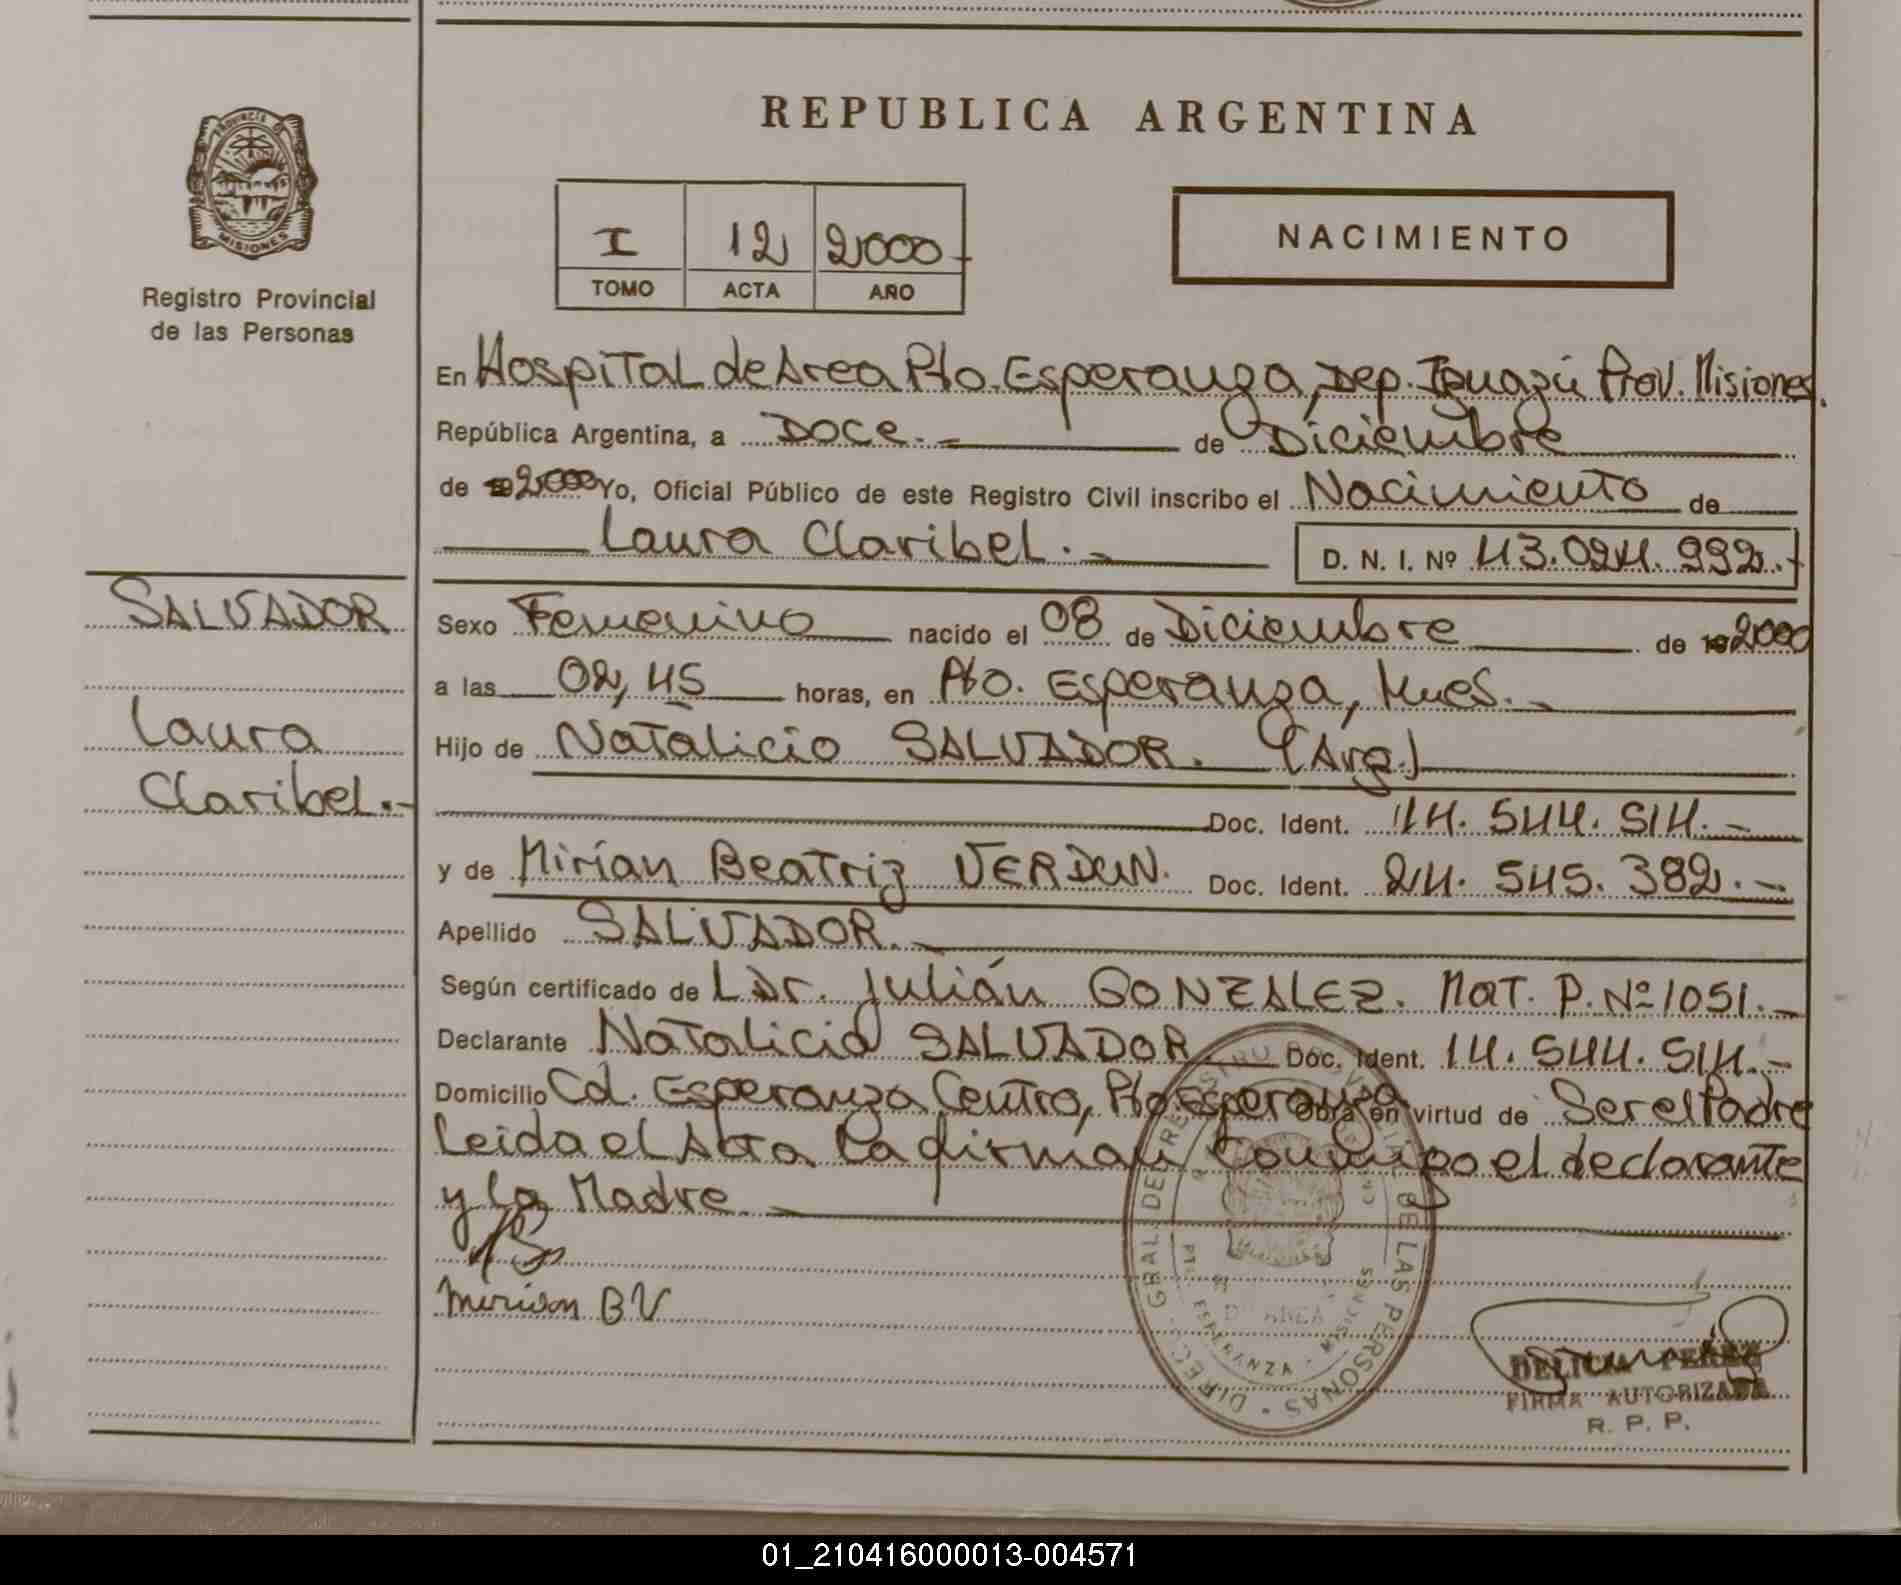 REPUBLICA ARGENTINA
PROVINCIA DE
MISIONES
Registro Provincial
de las Personas
I 12 2000
TOMO ACTA AÑO
NACIMIENTO
En Hospital de Area Pto. Esperanza, Dep. Iguazú Prov. Misiones.
República Argentina, a Doce.- de Diciembre
de 2000 Yo, Oficial Público de este Registro Civil inscribo el Nacimiento de
Laura Claribel.- D. N. I. Nº 43.024.992.-
SALVADOR
Laura
Claribel.-
Sexo Femenino nacido el 08 de Diciembre de 2000
a las 02,45 horas, en Pto. Esperanza, Mnes.-
Hijo de Natalicio SALVADOR. (Arg.)
Doc. Ident. 14.544.514.-
y de Mirían Beatriz VERDUN. Doc. Ident. 24.545.382.-
Apellido SALVADOR.-
Según certificado de Dr. Julián GONZALEZ. Mat. P. Nº 1051.-
Declarante Natalicio SALVADOR Doc. Ident. 14.544.514.-
Domicilio Cd. Esperanza Centro, Pto Esperanza Obra en virtud de Ser el Padre
Leida el Acta la firman Conmigo el declarante
y la Madre.
Mirian B V
DIREC. GRAL. DEL REGISTRO PROVINCIAL DE LAS PERSONAS
ESPERANZA - MISIONES
DELICIA PEREZ
FIRMA AUTORIZADA
R. P. P.
01_210416000013-004571